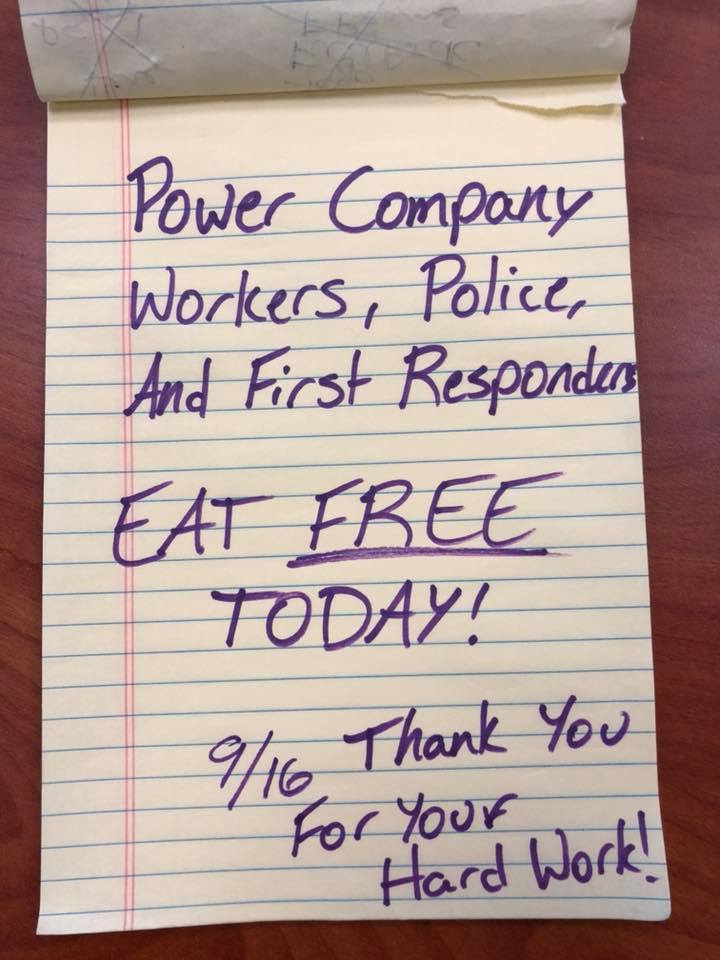 Power Company
Workers, Police,
And First Responders
EAT FREE
TODAY!
9/16 Thank You
For Your
Hard Work!